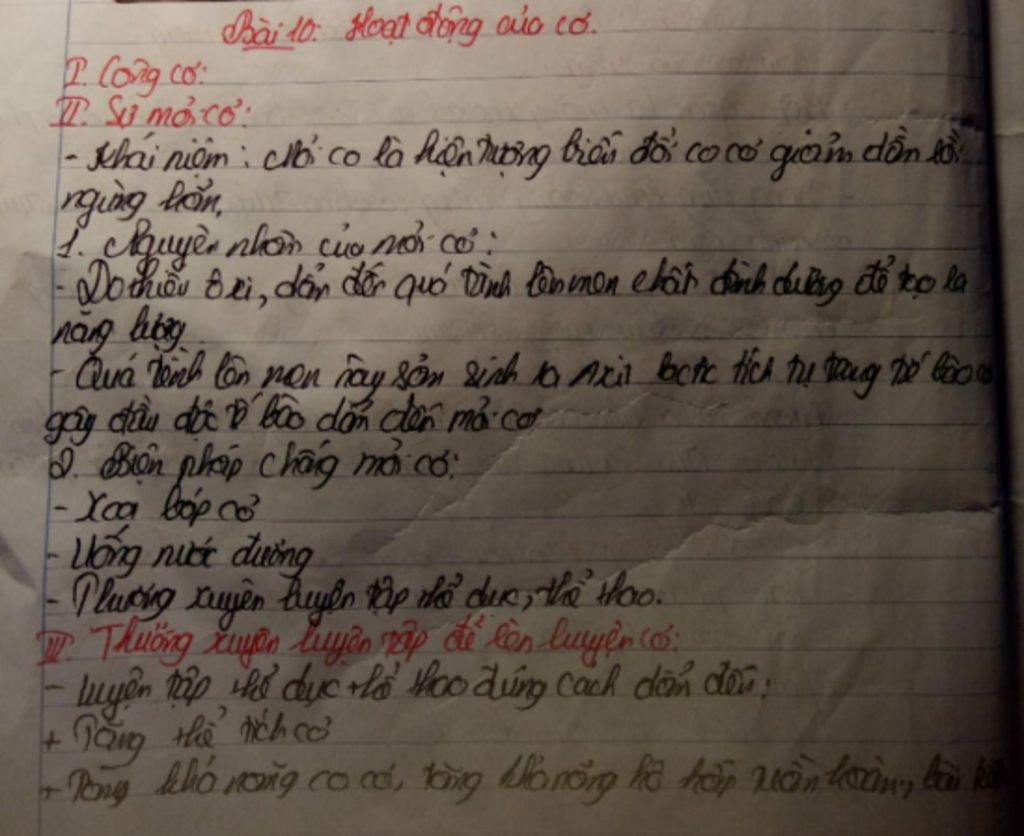 Bài 10: Hoạt động của cơ.
I. Công cơ:
II. Sự mỏi cơ:
- Khái niệm: Mỏi cơ là hiện tượng biên độ co cơ giảm dần rồi
ngừng hẳn.
1. Nguyên nhân của mỏi cơ:
- Do thiếu ôxi, dẫn đến quá trình lên men chất dinh dưỡng để tạo ra
năng lượng
- Quá trình lên men này sản sinh ra Axit lactic tích tụ trong tế bào cơ
gây đầu độc tế bào dẫn đến mỏi cơ
2. Biện pháp chống mỏi cơ:
- Xoa bóp cơ
- Uống nước đường
- Thường xuyên luyện tập thể dục, thể thao.
III. Thường xuyên luyện tập để rèn luyện cơ:
- Luyện tập thể dục thể thao đúng cách dẫn đến:
+ Tăng thể tích cơ
+ Tăng khả năng co cơ, tăng khả năng hô hấp tuần hoàn,